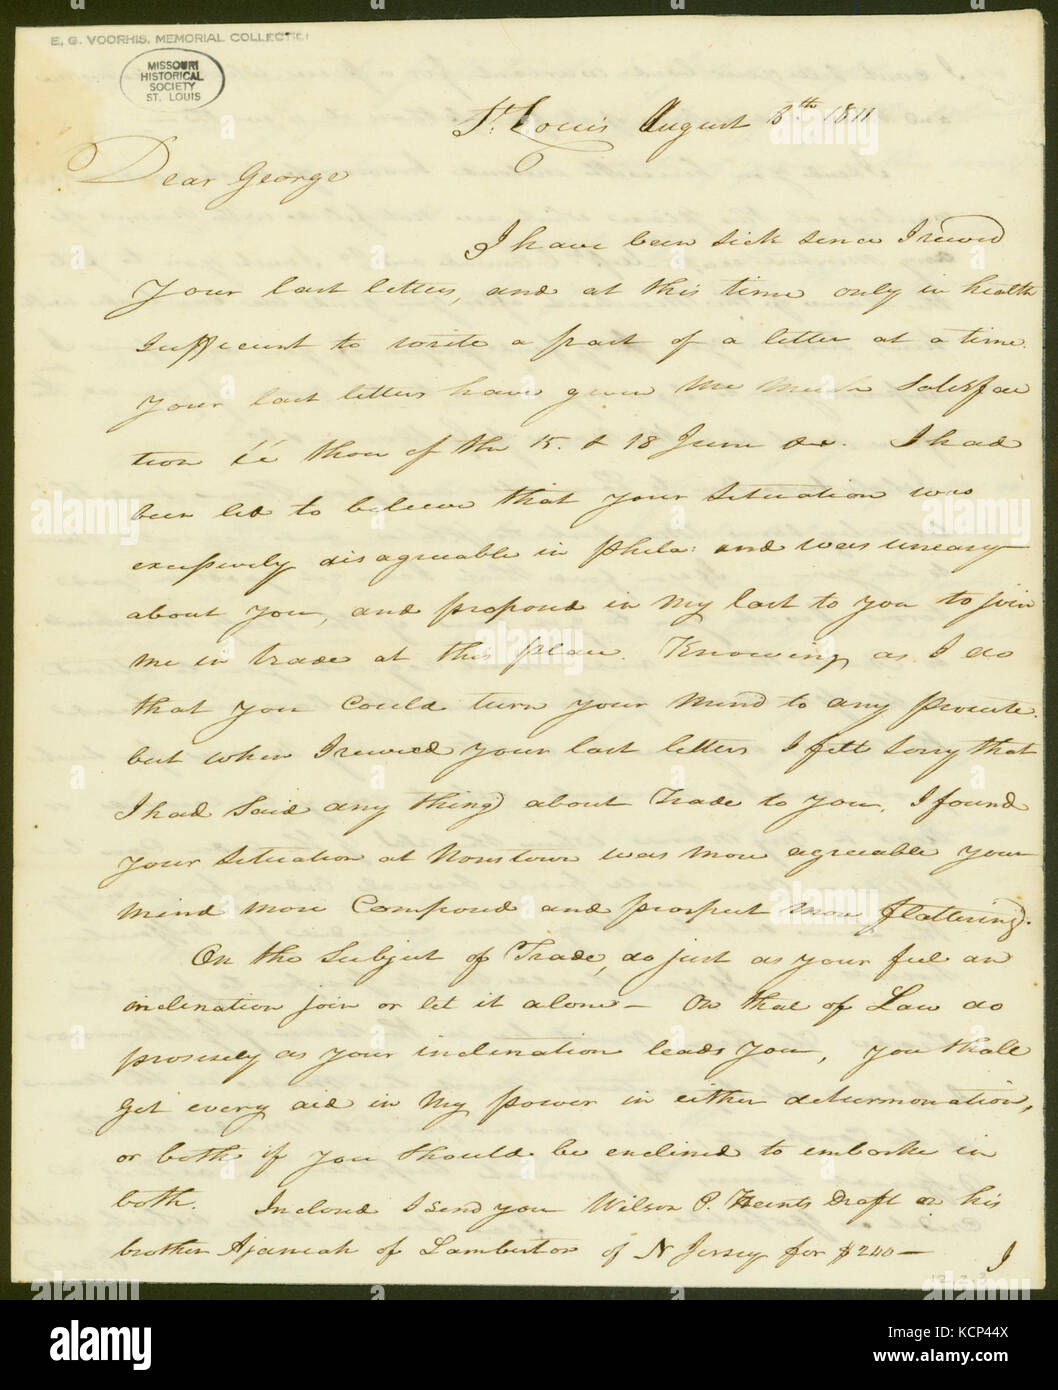 E. G. VOORHIS. MEMORIAL COLLECTION
MISSOURI
HISTORICAL
SOCIETY
ST. LOUIS
St. Louis August 8th 1811
Dear George
I have been sick since I recved
your last letters, and at this time only in health
sufficient to write a part of a letter at a time.
your last letters have given me much satisfac
tion ie those of the 15. & 18 June &c. I had
been led to beleeve that your situation was
excessively disagreeable in Phila: and was uneasy
about you, and proposed in my last to you to join
me in trade at this place. Knowing as I do
that you could turn your mind to any persute.
but when I recved your last letters I felt sorry that
I had said any thing about Trade to you, I found
your situation at Norristown was more agreeable your
mind more Composed and prospect more flattering.
On the subject of Trade, do just as your feel an
inclination join or let it alone — On that of Law do
prosisely as your inclination leads you, you shall
get every aid in my power in either determonation,
or both if you should be enclined to embarke in
both. Inclosed I send you Wilson P. Hunts Draft on his
brother of Lamberton of N Jersey for $240 — I
alamy
alamy stock photo
KCP44X
www.alamy.com